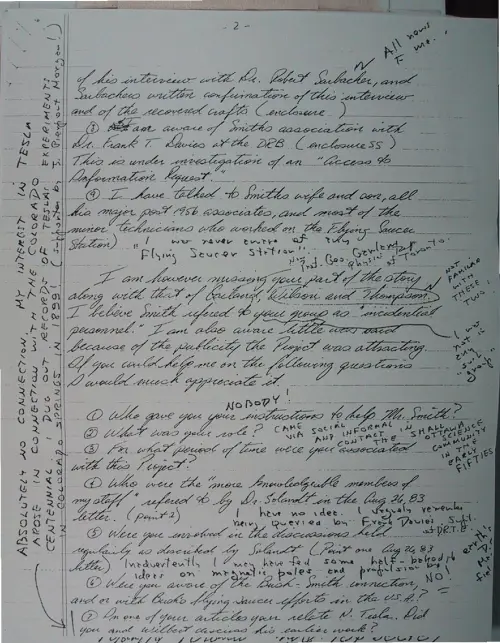 - 2 -
All news
to me.
of his interview with Dr. Robert Sarbacher, and
Sarbachers written confirmation of this interview
and of the recovered crafts (enclosure )
③ I am aware of Smiths association with
Dr. Frank T. Davies at the DRB (enclosure SS)
This is under investigation of an "Access to
Information Request."
④ I have talked to Smiths wife and son, all
his major post 1956 associates, and most of the
minor technicians who worked on the Flying Saucer
Station)
"I was never on any
Flying Saucer Station"!
Geo. Garland
Physics of Toronto.
I am however missing your part of the story
along with that of Garland, Wilson and Thompson.
NOT
FAMILIAR
WITH
THESE
TWO
I believe Smith refered to your group as "incidental
personnel." I am also aware little was said
because of the publicity the Project was attracting.
I was
not in
any
group"
If you could help me on the following questions
I would much appreciate it.
NOBODY!
① Who gave you your instructions to help Mr. Smith?
② What was your role?
CAME VIA SOCIAL
AND INFORMAL
CONTACT IN THE SMALL
SCIENCE
COMMUNITY
IN THE
EARLY
FIFTIES
③ For what period of time were you associated
with this Project?
④ Who were the "more knowledgeable members of
my staff" refered to by Dr. Solandt in the Aug 26, 83
letter. (point 2)
I have no idea. I vaguely remember
being queried by Frank Davies, Supt.
at D.R.T.E.
⑤ Were you involved in the discussions held
regularly as described by Solandt (Point one Aug 26, 83
letter)
Inadvertently I may have fed some half-baked
ideas on magnetic poles and propulsion by
earth's
NO!
⑥ Were you aware of the Bush-Smith connection,
and or with Bush's flying saucer efforts in the U.S.A.?
⑦ In one of your articles you relate N. Tesla. Did
you and Wilbert discuss his earlier work?
ABSOLUTELY NO CONNECTION, MY INTEREST IN TESLA
AROSE IN CONNECTION WITH THE COLORADO
CENTENNIAL. I DUG OUT RECORDS OF TESLAS EXPERIMENTS
IN COLORADO SPRINGS IN 1899! (Supported by J. Pierpont Morgan!)